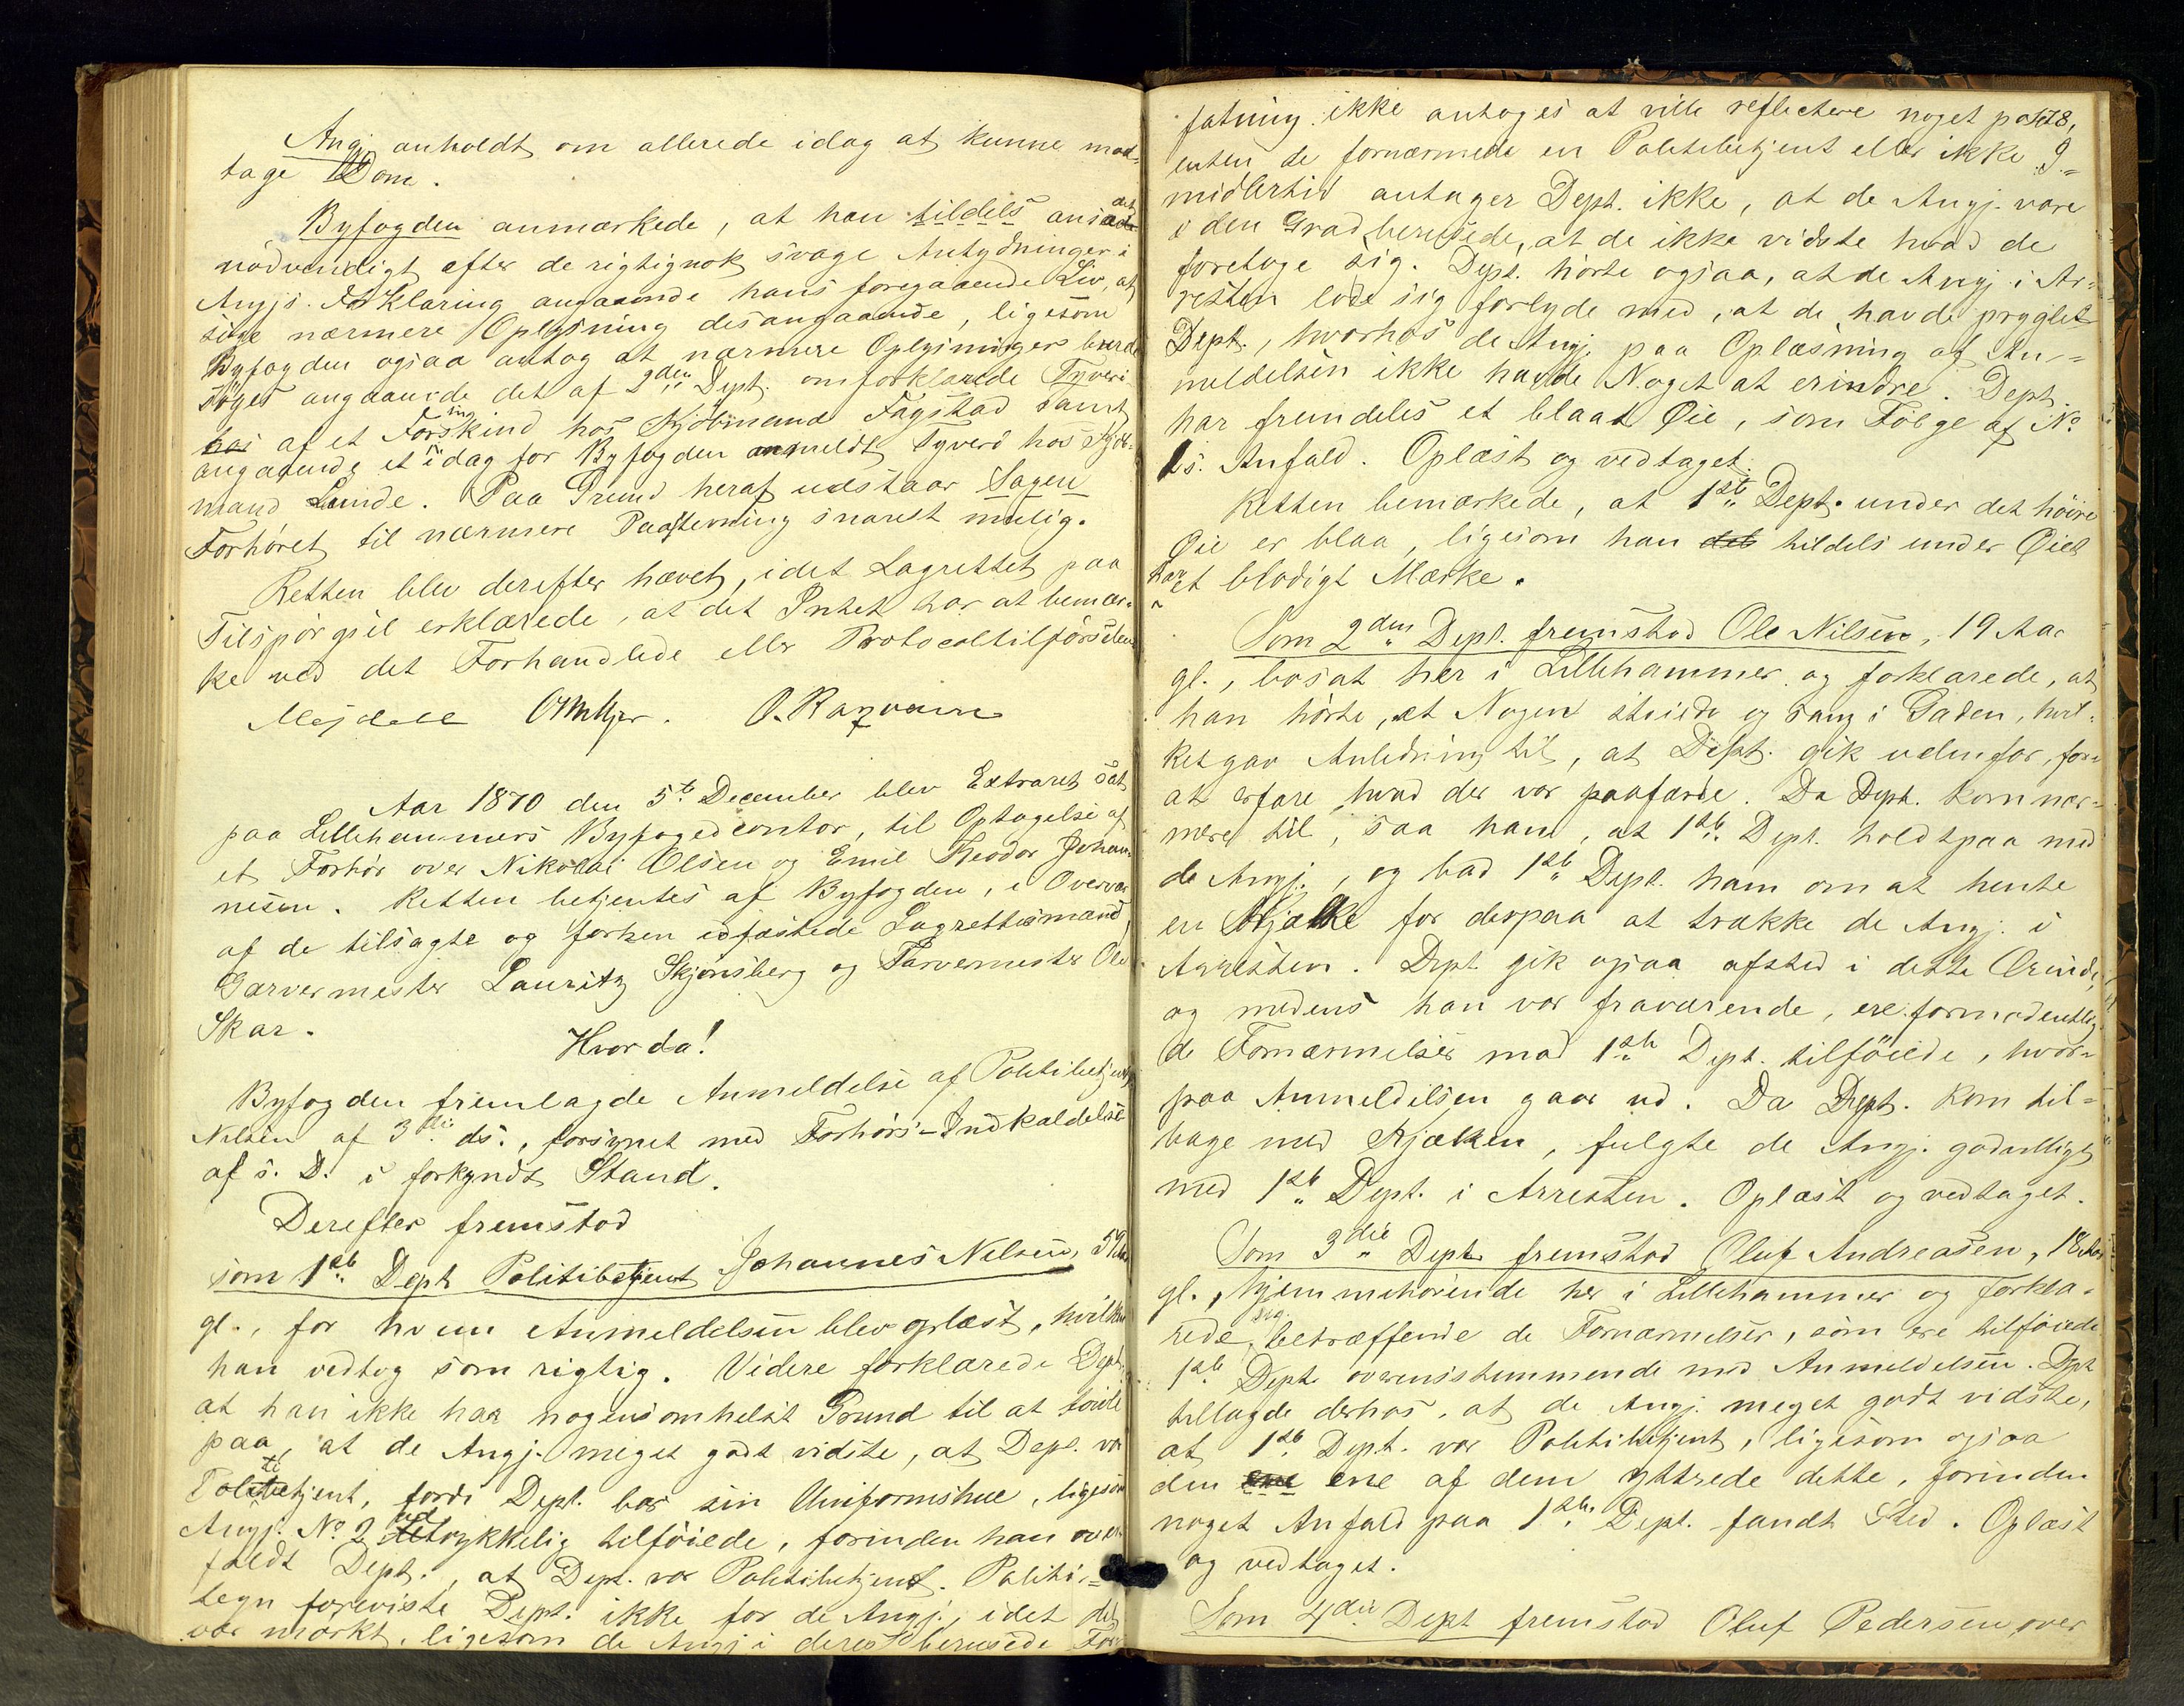 Angj. anholdt om allerede idag at kunne mod-
tage Dom.
Byfogden anmærkede, at han tildels ansaa det
nödvendigt efter de rigtignok svage Antydninger i
Angjs. Forklaring angaaende hans foregaaende Liv, at
söge nærmere Oplysning desangaaende, ligesom
Byfogden ogsaa antog at nærmere Oplysninger burde
söges angaaende det af 2den Dept. omforklarede Tyveri
hos af et Forskind hos Kjöbmand Fagstad samt
angaaende et idag for Byfogden anmeldt Tyveri hos Kjöb-
mand Lunde. Paa Grund heraf udstaar Sagen
Forhöret til nærmere Paastevning snarest mulig.
Retten blev derefter hævet, idet Lagrettet paa
Tilspörgsel erklærede, at det Intet har at bemær-
ke ved det Forhandlede eller Protocoltilförselen
Mejdell O. Rasvain
Aar 1870 den 5te December blev Extraret sat
paa Lillehammers Byfogedcontor, til Optagelse af
et Forhör over Nikolai Olsen og Emil Theodor Johan-
nesen. Retten betjentes af Byfogden, i Overvær
af de tilsagte og forhen edfæstede Lagrettesmænd,
Garvermester Lauritz Skjönsberg og Farvermester Ole
Skar.
Hvor da!
Byfogden fremlagde Anmeldelse af Politibetjent
Nilsen af 3die ds., forsynet med Forhörs-Indkaldelse
af s. D. i forkyndt Stand.
Derefter fremstod
som 1ste Dept Politibetjent Johannes Nilsen, 59 Aar
gl., for hvem Anmeldelsen blev oplæst, hvilken
han vedtog som rigtig. Videre forklarede Dept.
at han ikke har nogensomhelst Grund til at tvivle
paa, at de Angj. meget godt vidste, at Dept. var
Politibetjent, fordi Dept. bar sin Uniformshue, ligesom
Angj. No 2 udtrykkelig tilföiede, forinden han over-
faldt Dept., at Dept. var Politibetjent. Politi-
tegn foreviste Dept. ikke for de Angj., idet det
var mörkt, ligesom de Angj i deres berusede For-
fatning ikke antoges at ville reflectere noget paa
478,
enten de fornærmede en Politibetjent eller ikke. I-
midlertid antager Dept. ikke, at de Angj. vare
i den Grad berusede, at de ikke vidste hvad de
foretoge sig. Dept. hörte ogsaa, at de Angj. i Ar-
resten lode sig forlyde med, at de havde pryglet
Dept., hvorhos de Angj. paa Oplæsning af An-
meldelsen ikke havde Noget at erindre. Dept.
har fremdeles et blaat Øie, som Fölge af No
1s. Anfald. Oplæst og vedtaget.
Retten bemærkede, at 1ste Dept. under det höire
Øie er blaa, ligesom han det tildels under Øiet
har et blodigt Mærke.
Som 2den Dept. fremstod Ole Nilsen, 19 Aar
gl., bosat her i Lillehammer og forklarede, at
han hörte, at Nogen støiede og sang i Gaden, hvil-
ket gav Anledning til, at Dept. gik udenfor, for
at erfare, hvad der var paafærde. Da Dept. kom nær-
mere til, saa han, at 1ste Dept. holdt paa med
de Angj., og bad 1ste Dept. ham om at hente
en Kjælke for derpaa at trække de Angj. i
Arresten. Dept. gik ogsaa afsted i dette Ærinde,
og medens han var fraværende, ere formodentlig
de Fornærmelser mod 1ste Dept. tilföiede, hvor-
paa Anmeldelsen gaar ud. Da Dept. kom til-
bage med Kjælken, fulgte de Angj. godvilligt
med 1ste Dept. i Arresten. Oplæst og vedtaget.
Som 3die Dept fremstod Oluf Andreasen, 18 Aar
gl., hjemmehörende her i Lillehammer og forkla-
rede sig betræffende de Fornærmelser, som ere tilföiede
1ste Dept overensstemmende med Anmeldelsen. Dept
tillagde derhos, at de Angj. meget godt vidste,
at 1ste Dept. var Politibetjent, ligesom ogsaa
den ene ene af dem yttrede dette, forinden
noget Anfald paa 1ste Dept. fandt Sted. Oplæst
og vedtaget.
Som 4die Dept fremstod Oluf Pedersen, over